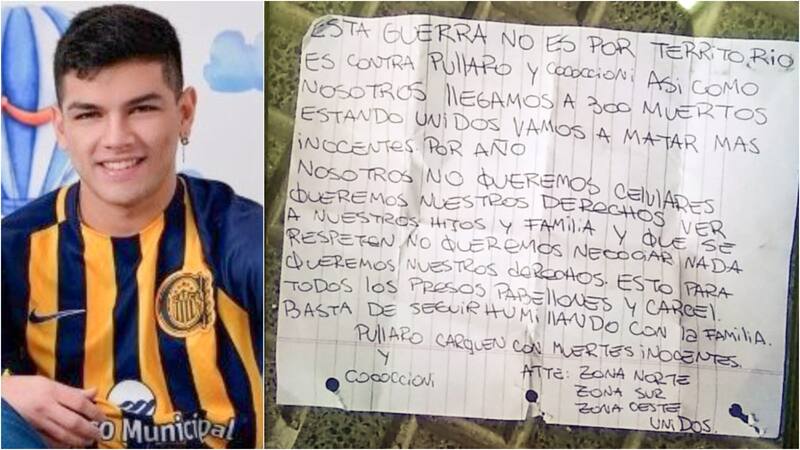 ESTA GUERRA NO ES POR TERRITORIO
ES CONTRA PULLARO y COCOCCIONI ASI COMO
NOSOTROS LLEGAMOS A 300 MUERTOS
ESTANDO UNIDOS VAMOS A MATAR MAS
INOCENTES POR AÑO
NOSOTROS NO QUEREMOS CELULARES
QUEREMOS NUESTROS DERECHOS VER
A NUESTROS HIJOS Y FAMILIA Y QUE SE
RESPETEN NO QUEREMOS NEGOCIAR NADA
QUEREMOS NUESTROS DERECHOS. ESTO PARA
TODOS LOS PRESOS PABELLONES Y CARCEL.
BASTA DE SEGUIR HUMILLANDO CON LA FAMILIA.
PULLARO CARGUEN CON MUERTES INOCENTES.
Y
COCOCCIONI
ATTE: ZONA NORTE
ZONA SUR
ZONA OESTE
UNIDOS.
o Municipal